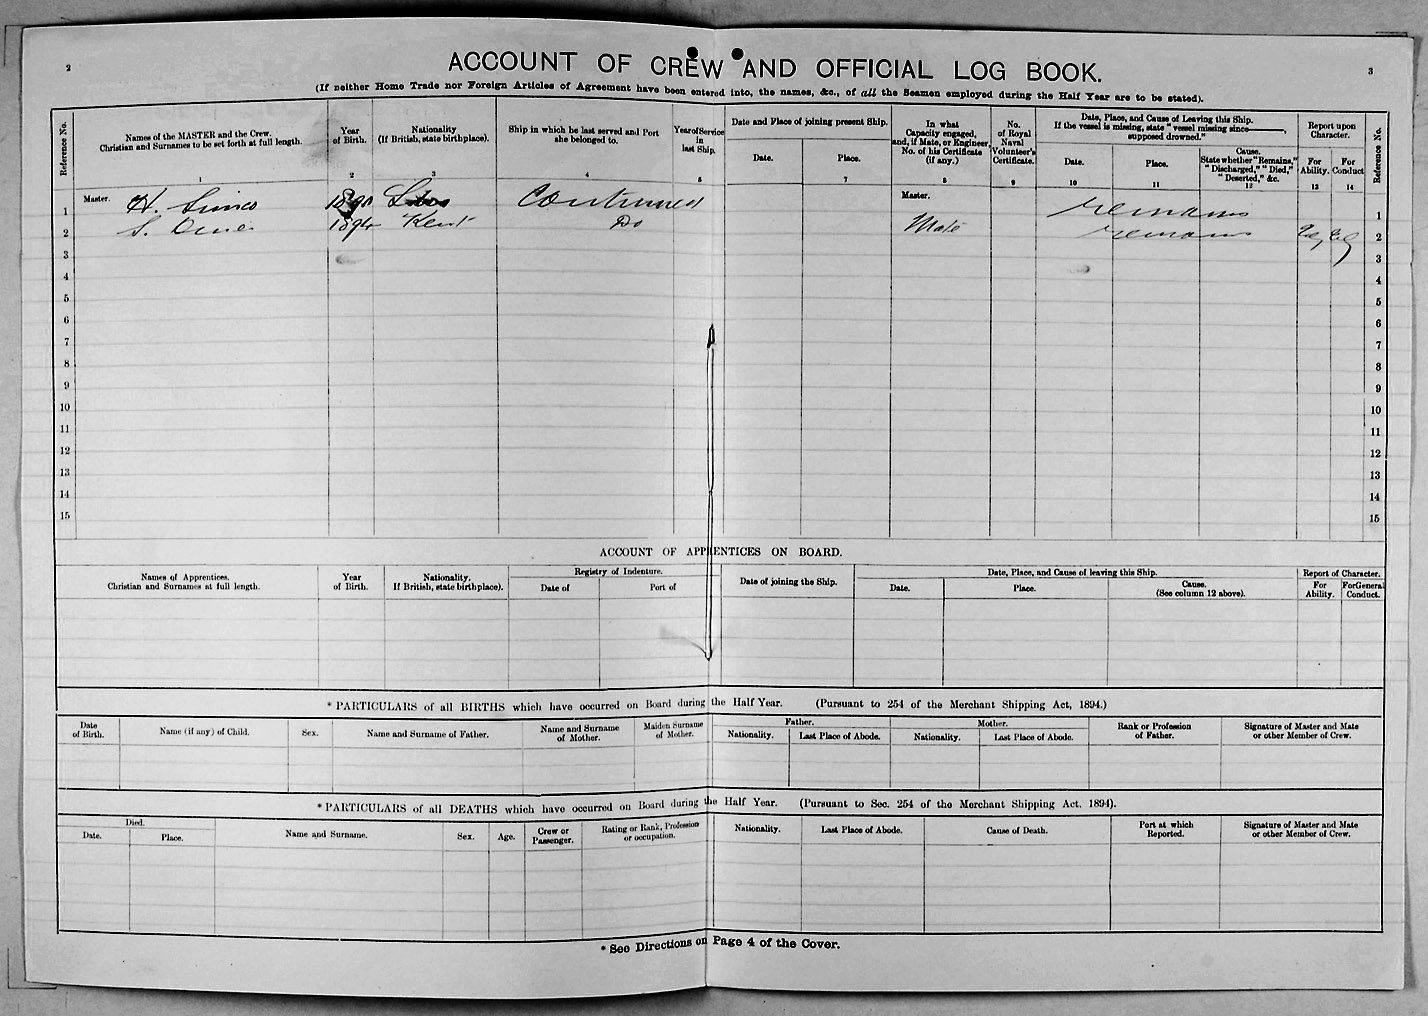 2
3
ACCOUNT OF CREW AND OFFICIAL LOG BOOK.
(If neither Home Trade nor Foreign Articles of Agreement have been entered into, the names, &c., of all the Seamen employed during the Half Year are to be stated).
Reference No.
Names of the MASTER and the Crew.
Christian and Surnames to be set forth at full length.
1
Year
of Birth.
2
Nationality
(If British, state birthplace).
3
Ship in which he last served and Port
she belonged to.
4
Year of Service
in
last Ship.
5
Date and Place of joining present Ship.
Date.
Place.
7
In what
Capacity engaged,
and, if Mate, or Engineer,
No. of his Certificate
(if any.)
8
No.
of Royal
Naval
Volunteer's
Certificate.
9
Date, Place, and Cause of Leaving this Ship.
If the vessel is missing, state "vessel missing since———,
supposed drowned."
Date.
10
Place.
11
Cause.
State whether "Remains,"
"Discharged," "Died,"
"Deserted," &c.
12
Report upon
Character.
For
Ability.
13
For
Conduct
14
Reference No.
1 Master. H. 1890 Continued Master. remains 1
2 S. 1894 Kent Do Mate remains 2
3 3
4 4
5 5
6 6
7 7
8 8
9 9
10 10
11 11
12 12
13 13
14 14
15 15
ACCOUNT OF APPRENTICES ON BOARD.
Names of Apprentices.
Christian and Surnames at full length.
Year
of Birth.
Nationality.
If British, state birthplace).
Registry of Indenture.
Date of
Port of
Date of joining the Ship.
Date, Place, and Cause of leaving this Ship.
Date.
Place.
Cause.
(See column 12 above).
Report of Character.
For
Ability.
For General
Conduct.
* PARTICULARS of all BIRTHS which have occurred on Board during the Half Year. (Pursuant to 254 of the Merchant Shipping Act, 1894.)
Date
of Birth.
Name (if any) of Child.
Sex.
Name and Surname of Father.
Name and Surname
of Mother.
Maiden Surname
of Mother.
Father.
Nationality.
Last Place of Abode.
Mother.
Nationality.
Last Place of Abode.
Rank or Profession
of Father.
Signature of Master and Mate
or other Member of Crew.
* PARTICULARS of all DEATHS which have occurred on Board during the Half Year. (Pursuant to Sec. 254 of the Merchant Shipping Act. 1894).
Died.
Date.
Place.
Name and Surname.
Sex.
Age.
Crew or
Passenger.
Rating or Rank, Profession
or occupation.
Nationality.
Last Place of Abode.
Cause of Death.
Port at which
Reported.
Signature of Master and Mate
or other Member of Crew.
* See Directions on Page 4 of the Cover.